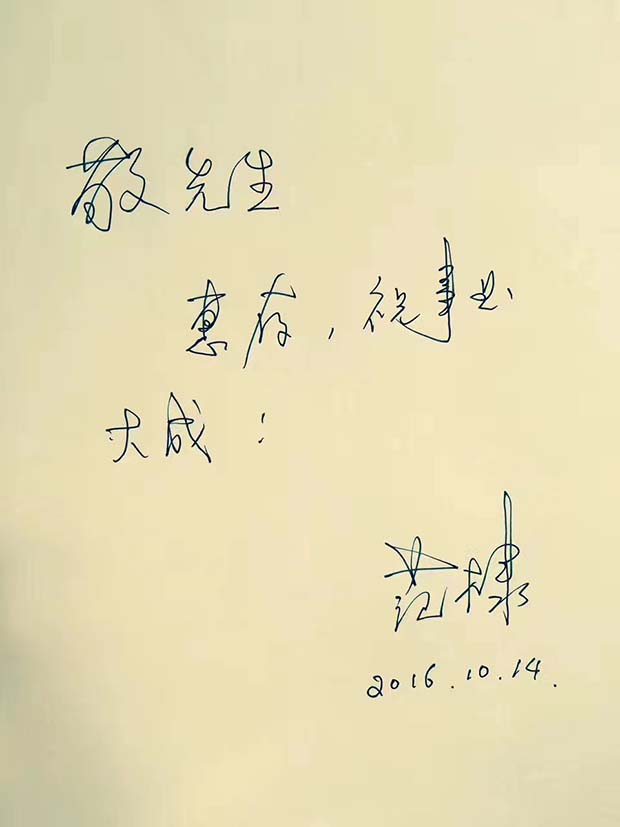 敬先生
惠存，祝事业
大成！
范棣
2016.10.14.